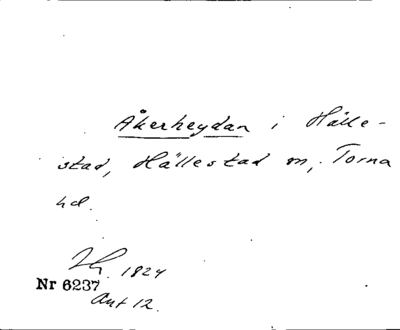 Åkerheydan i Hälle-
stad, Hällestad sn, Torna
hd.
1824
Nr 6237
Akt 12.